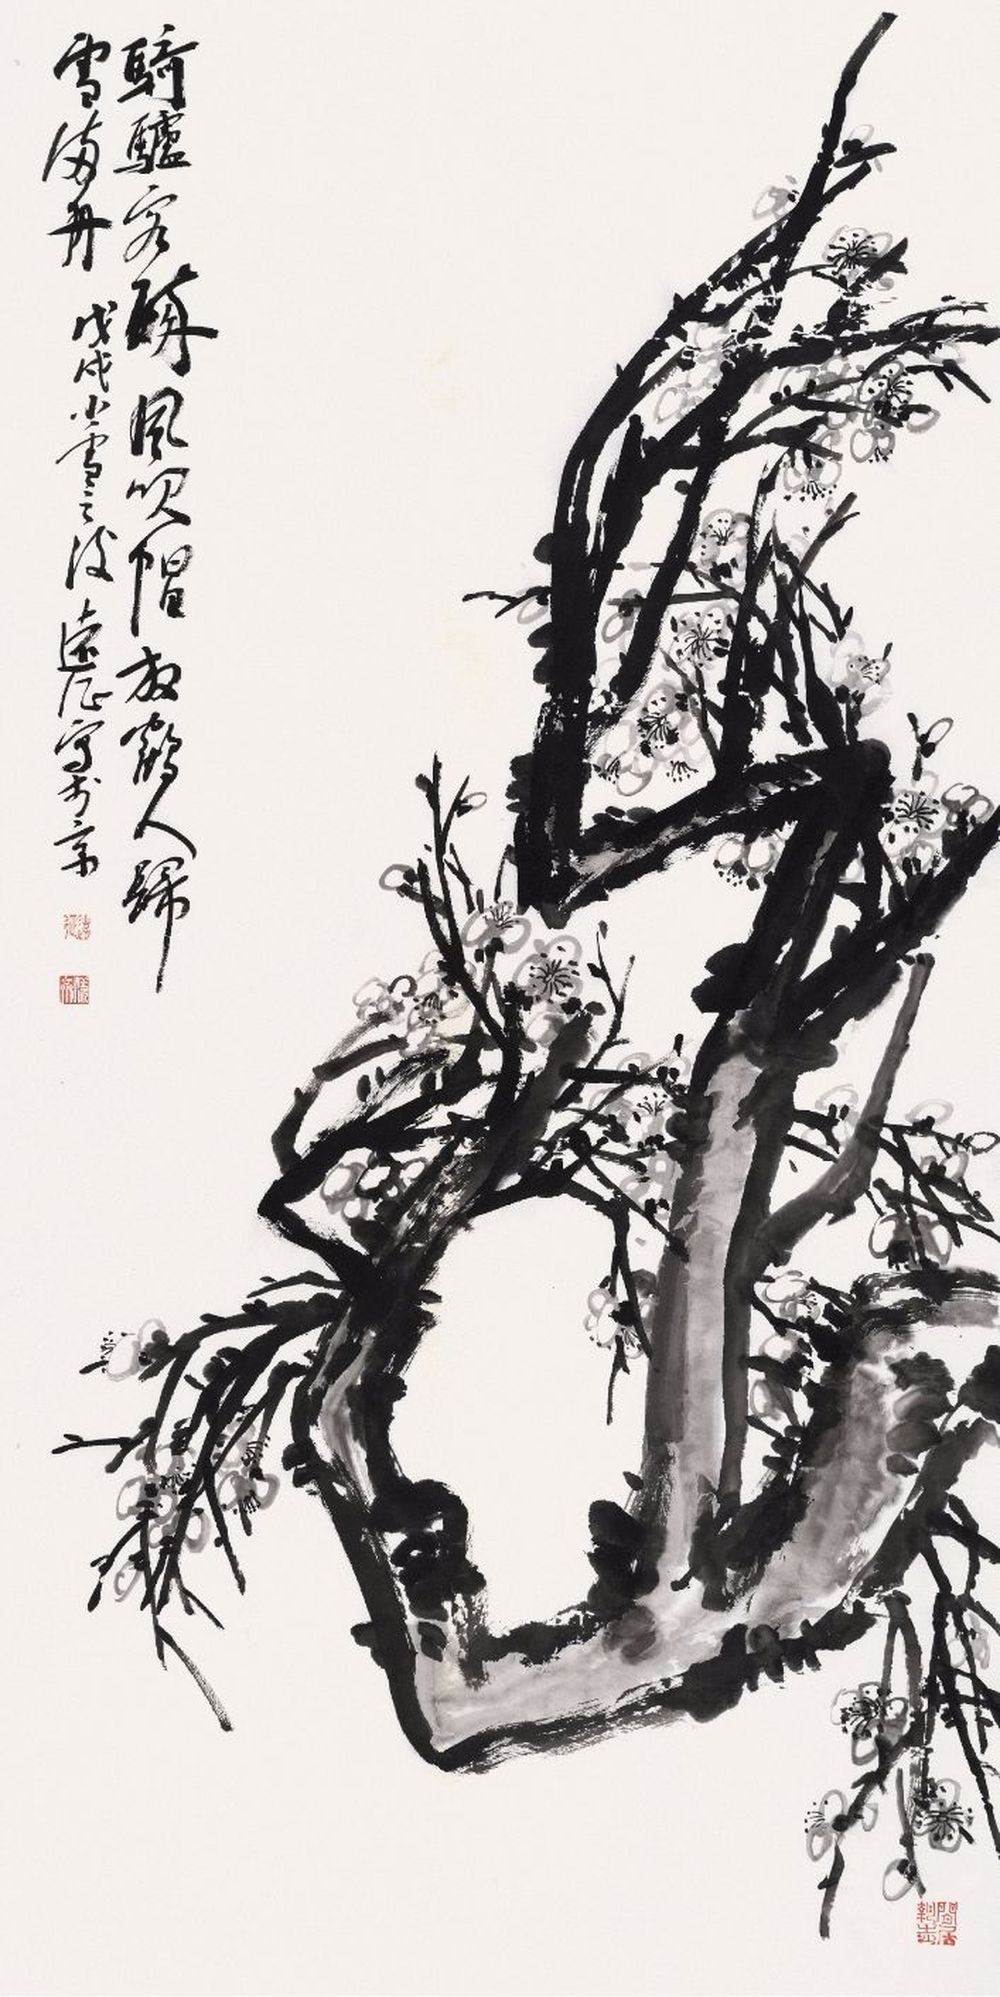 騎驢客醉風吹帽放鶴人歸
雪滿舟 戊戌小雪之後遠征寫於京
遠征